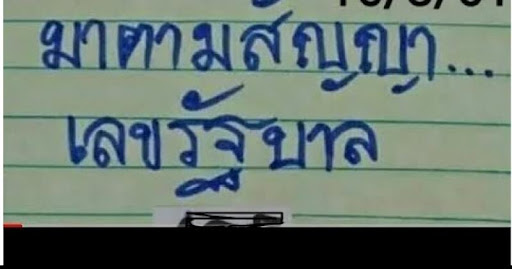 มาตามสัญญา...
เลขรัฐบาล